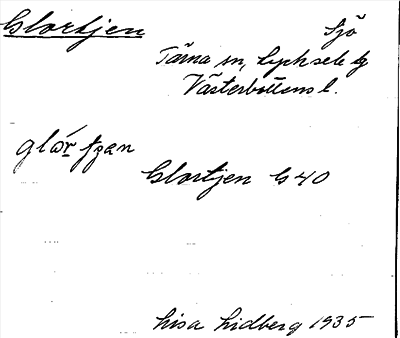 Glortjen Sjö
Tärna sn, Lycksele lg
Västerbottens l.
glor tjen
Glortjen G 40
Lisa Lidberg 1935